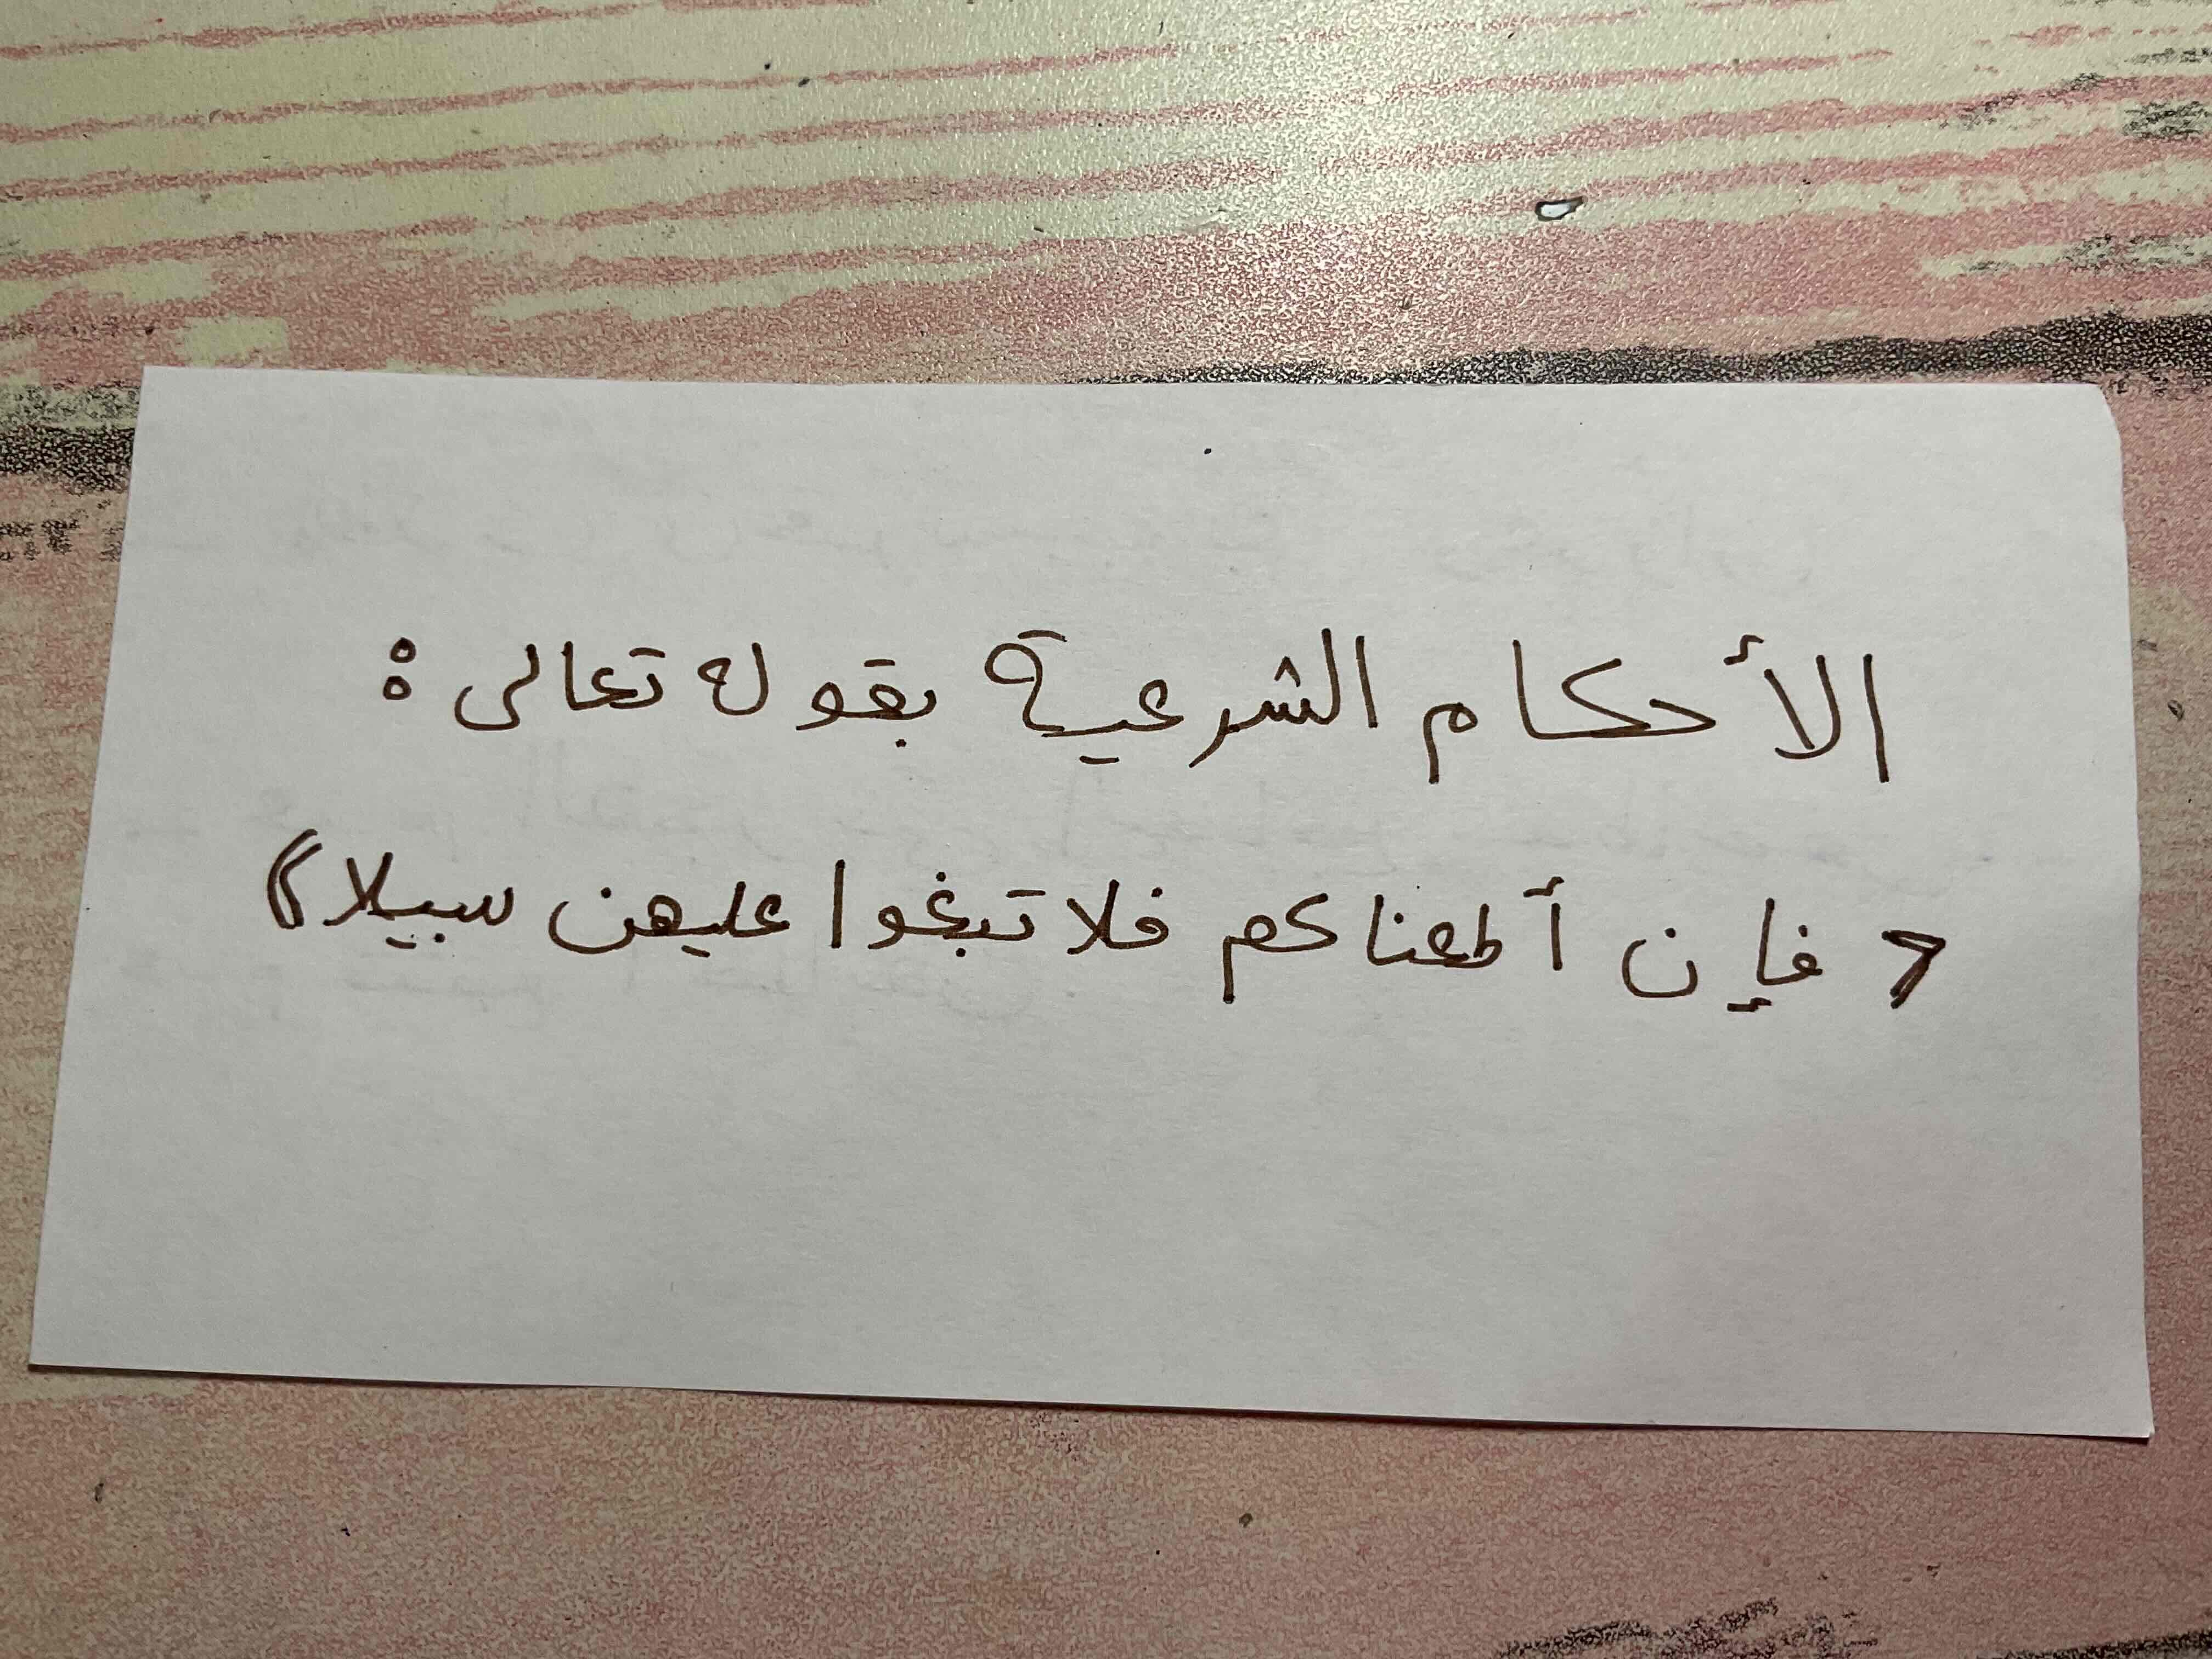 الأحكام الشرعية بقوله تعالى:
﴿فإن أطعناكم فلا تبغوا عليهن سبيلا﴾